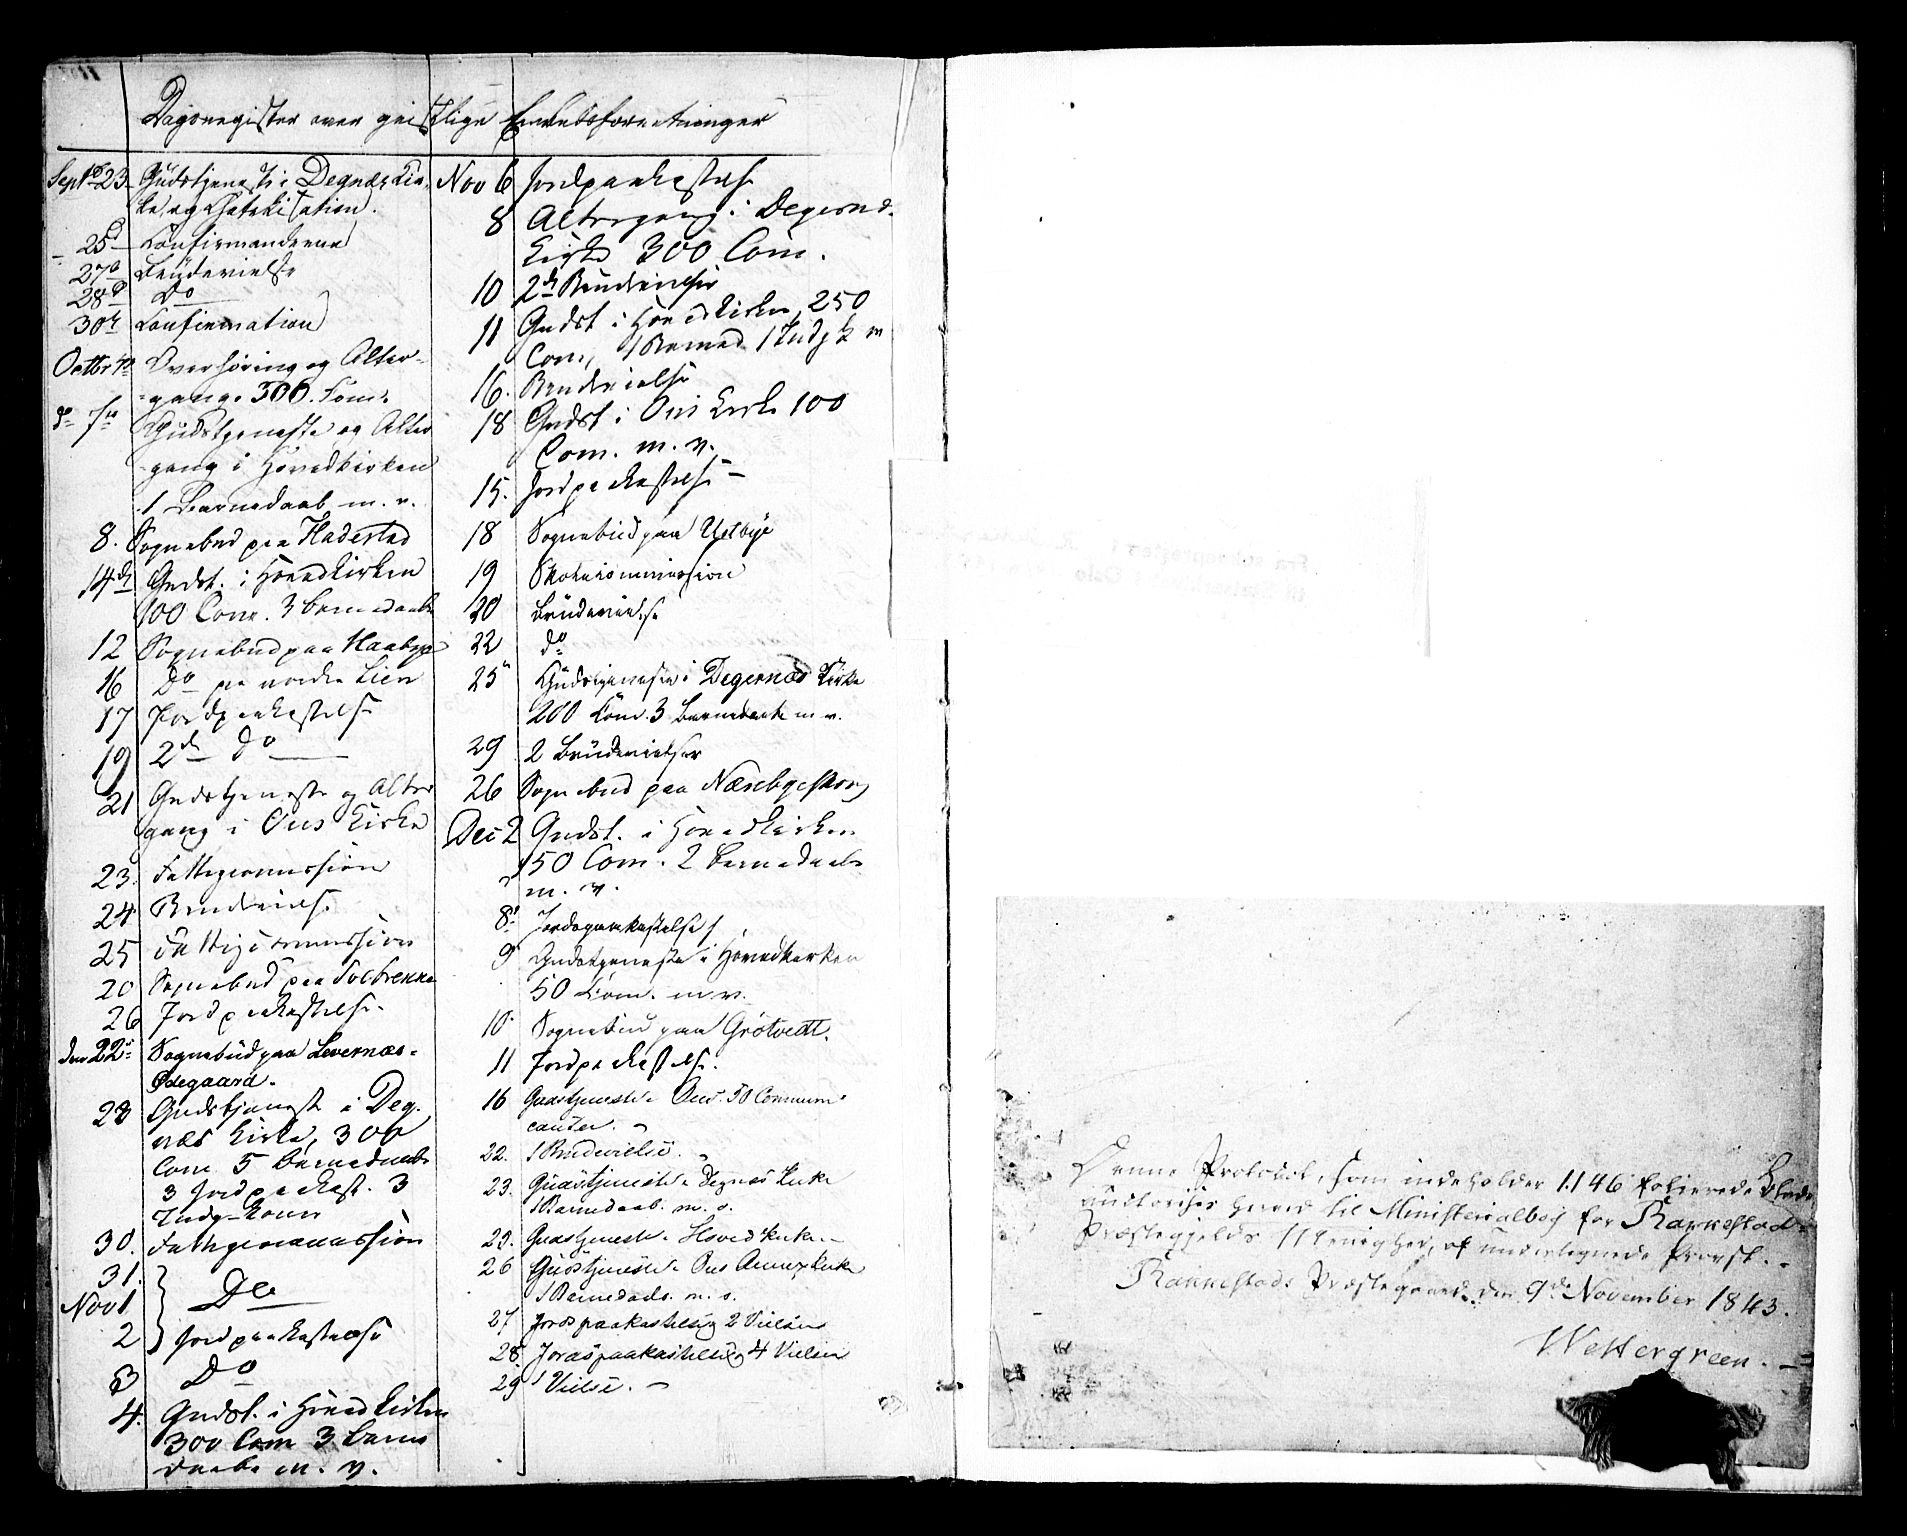 Dagsregister over geistlige Embedsforretninger
Septbr 23 Gudstjeneste i Degnæs Kir-
ke, og Chatekisation
25d Confirmanderne
27d Brudevielse
28d Do
30te Confirmation
Octbr Overhøring og Alter-
gang. 300. Com.
do 7de Gudstjeneste og Alter
gang i Hovedkirken
1 Barnedaab m. v.
8. Sognebud paa Hadestad
14de Gudst. i Hovedkirken
100 Com. 3 Barnedaabe
12 Sognebud paa Haabye
16 Do paa nordre Lien
17 Jordpaakastelse
19 2de Do
21 Gudstjeneste og Alter
gang i Ous Kirke
23. Fattigcommission
24 Brudevielse
25 Fattigcommission
20 Sognebud paa
26 Jordpaakastelse.
den 22de Sognebud paa Levernæs-
Ødegaard.
28 Gudstjenest i Deg.
næs Kirke, 300
Com 5 Barnedaabe
3 Jordpaakast. 3
Indg-Koner
30. Fattigcommission
31. Do
Nov 1
2 Jordpaakastelse
3 Do
4. Gudst. i Hovedkirken
300 Com 3 Barne
daabe m. v.
Nov 6 Jordpaakastelse
8 Altergang i Degernæs
Kirke 300 Com.
10 2de Brudevielser
11 Gudst i Hovedkirken, 250
Com, 1 Barned. 1 Indg k m
16. Brudevielse
18 Gudst i Ous Kirke 100
Com. m. v.
15. Jordpaakastelse –
18 Sognebud paa
19 Skolecommission
20 Brudevielse
22 do
25 Gudstjeneste i Degernæs Kirke
200 Com. 3 Barnedaabe m v.
29 2 Brudevielser
26 Sognebud paa Næsebyeskov
Dec 2 Gudst. i Hovedkirken
150 Com. 2 Barnedaabe
m. v.
8de Jordpaakastelse
9 Gudstjeneste i Hovedkirken
50 Com. m v.
10 Sognebud paa Grøtvedt.
11 Jordpaakastelse.
16 Gudstjeneste i Ous. 50 Communi-
canter. –
22. 1 Brudevielse.
23. Gudstjeneste i Degnæs Kirke
1 Barnedaab. m. v.
25. Gudstjeneste i Hovedkirken –
26 Gudstjeneste i Ous Annexkirke
1 Barnedaab. m. v.
27 Jordspaakastelse og 2 Vielser
28 Jordspaakastelse og 4 Vielser
29 1 Vielse. –
Denne Protocol, som indeholder 1146 folierede Blade
autoriseres herved til Ministerialbog for Rakkestads
Præstegjelds Menighed, af undertegnede Provst. –
Rakkestads Præstegaard, den 9de November 1843.
Wettergreen. –